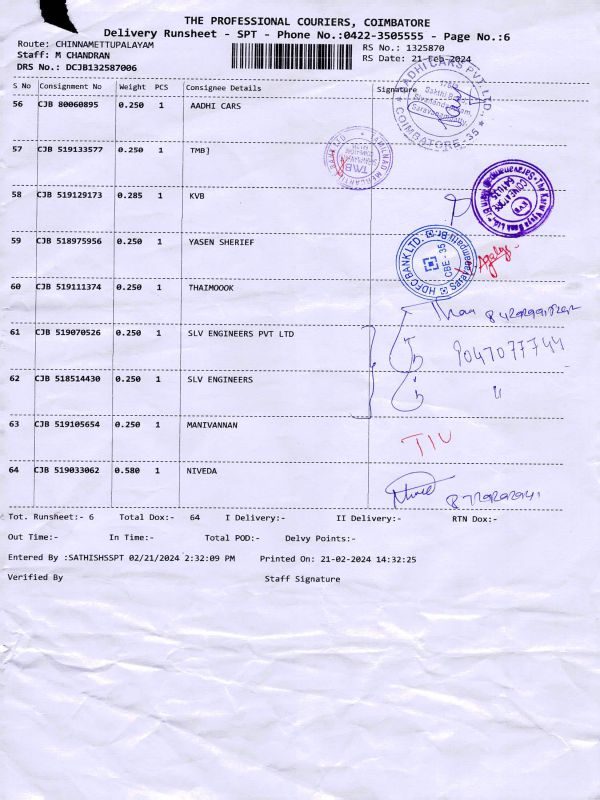 THE PROFESSIONAL COURIERS, COIMBATORE
Delivery Runsheet - SPT - Phone No.:0422-3505555 - Page No.:6
Route: CHINNAMETTUPALAYAM RS No.: 1325870
Staff: M CHANDRAN RS Date: 21-Feb-2024
DRS No.: DCJB132587006
S No Consignment No Weight PCS Consignee Details Signature
56 CJB 80060895 0.250 1 AADHI CARS
AADHI CARS PVT LTD.
COIMBATORE-35
57 CJB 519133577 0.250 1 TMB]
TMB
58 CJB 519129173 0.285 1 KVB
KVB
59 CJB 518975956 0.250 1 YASEN SHERIEF
HDFC BANK LTD.
CBE - 35
60 CJB 519111374 0.250 1 THAIMOOOK
61 CJB 519070526 0.250 1 SLV ENGINEERS PVT LTD
9047077744
62 CJB 518514430 0.250 1 SLV ENGINEERS
63 CJB 519105654 0.250 1 MANIVANNAN
64 CJB 519033062 0.580 1 NIVEDA
Tot. Runsheet:- 6 Total Dox:- 64 I Delivery:- II Delivery:- RTN Dox:-
Out Time:- In Time:- Total POD:- Delvy Points:-
Entered By :SATHISHSSPT 02/21/2024 2:32:09 PM Printed On: 21-02-2024 14:32:25
Verified By Staff Signature